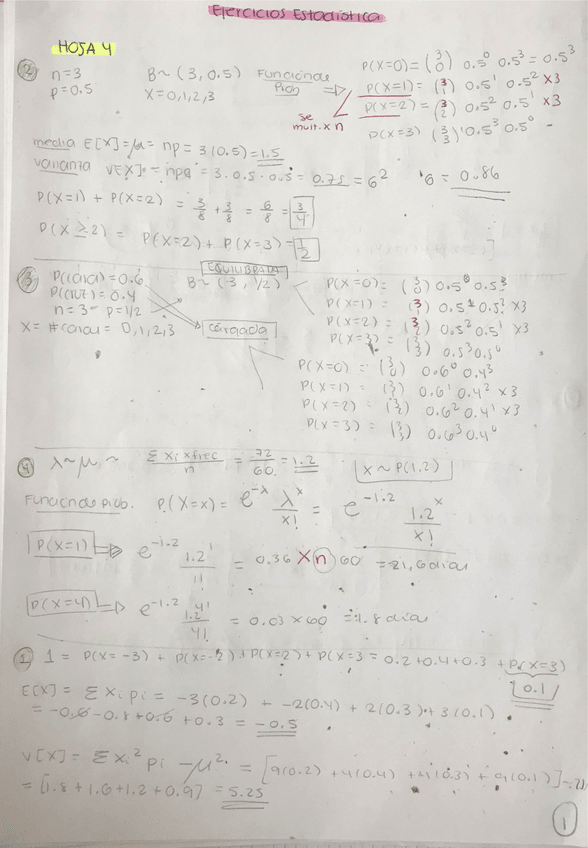 Ejercicios Estadística
HOJA 4
② n=3 B~(3,0.5) Función de Prob P(X=0)=(3 0) 0.5^0 0.5^3 = 0.5^3
p=0.5 X=0,1,2,3 P(X=1)=(3 1) 0.5^1 0.5^2 x3
se mult. x n P(X=2)=(3 2) 0.5^2 0.5^1 x3
P(X=3) (3 3) 0.5^3 0.5^0 =
media E[X]=μ= np = 3(0.5)=1.5
varianza V[X]= npq = 3·0.5·0.5= 0.75 = σ^2 σ= 0.86
P(X=1) + P(X=2) = 3/8 + 3/8 = 6/8 = 3/4
P(X≥2) = P(X=2)+ P(X=3)= 1/2
EQUILIBRADA
③ P(cara)=0.6 B~(3,1/2) P(X=0)= (3 0) 0.5^0 0.5^3
P(cruz)=0.4 P(X=1)= (3 1) 0.5^1 0.5^2 x3
n=3 p=1/2 P(X=2)= (3 2) 0.5^2 0.5^1 x3
X= #caras= 0,1,2,3 cargada P(X=3)= (3 3) 0.5^3 0.5^0
P(X=0) = (3 0) 0.6^0 0.4^3
P(X=1) = (3 1) 0.6^1 0.4^2 x3
P(X=2) = (3 2) 0.6^2 0.4^1 x3
P(X=3) = (3 3) 0.6^3 0.4^0
④ λ~μ~ Σ xi x frec / n = 72/60 = 1.2 X~P(1.2)
Función de Prob. P(X=x) = e^-λ λ^x/x! = e^-1.2 1.2^x/x!
P(X=1) e^-1.2 1.2^1/1! = 0.36 x n 60 = 21,6 días
P(X=4) e^-1.2 1.2^4/4! = 0.03 x 60 = 1.8 días
① 1 = P(X=-3) + P(X=-2) + P(X=2) + P(X=3 = 0.2+0.4+0.3 + P(X=3)
0.1
E[X] = Σ xi pi = -3(0.2) + -2(0.4) + 2(0.3) + 3(0.1)
= -0.6-0.8+0.6+0.3 = -0.5
V[X] = Σ xi^2 pi - μ^2 = [9(0.2) + 4(0.4) + 4(0.3) + 9(0.1)]
= [1.8 + 1.6+1.2+0.9] = 5.25
1